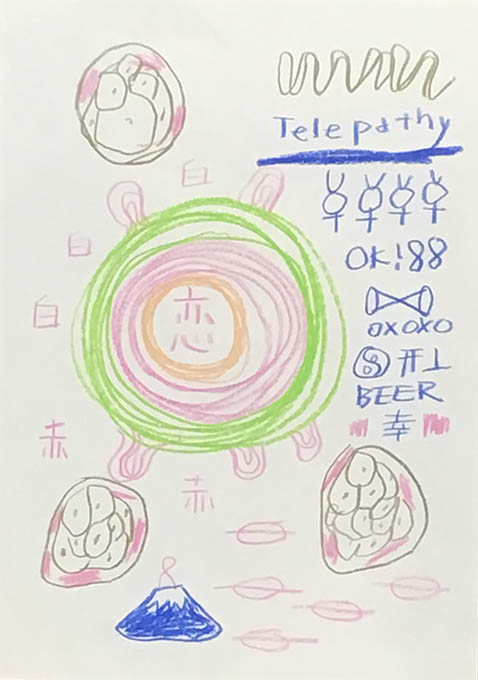 Telepathy
OK!88
oxoxo
BEER
幸
白
白
白
恋
赤
赤